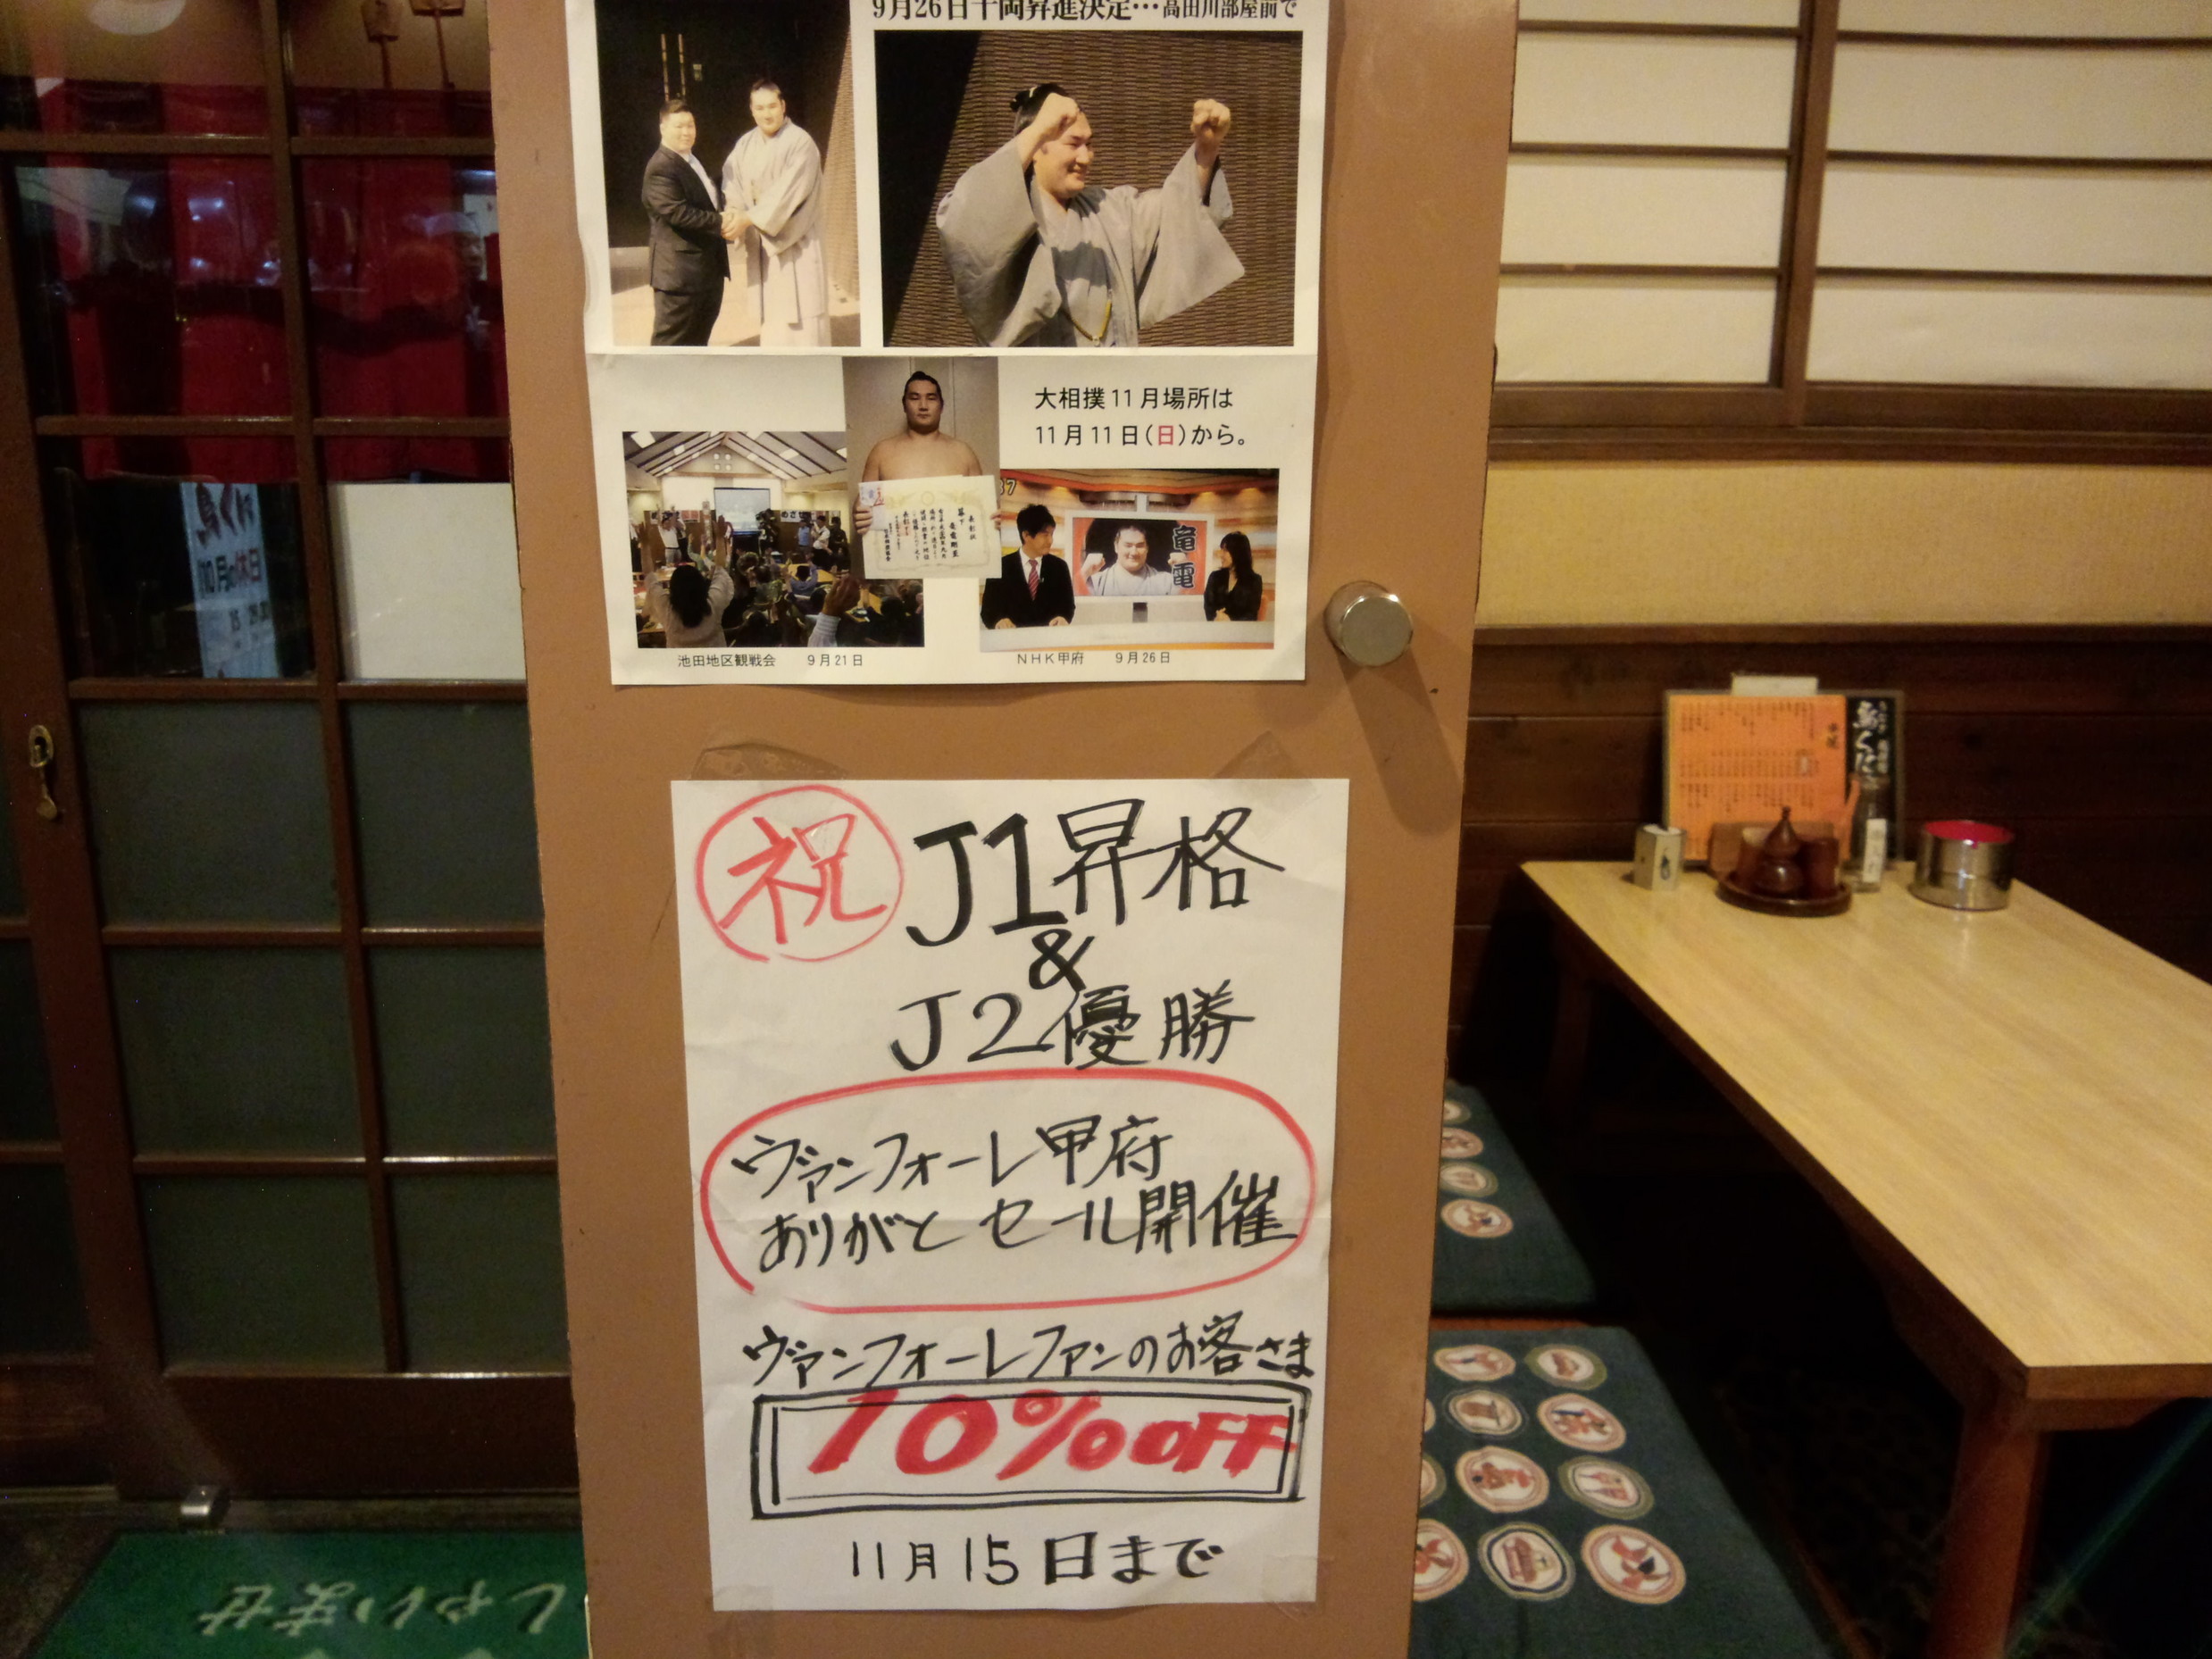 9月26日十両昇進決定…高田川部屋前で
大相撲11月場所は
11月11日(日)から。
竜電
池田地区観戦会　9月21日
NHK甲府　9月26日
祝 J1昇格
&
J2優勝
ヴァンフォーレ甲府
ありがと セール開催
ヴァンフォーレファンのお客さま
10%OFF
11月15日まで
鳥くに
10月の休日
鳥くに
しゃいませ